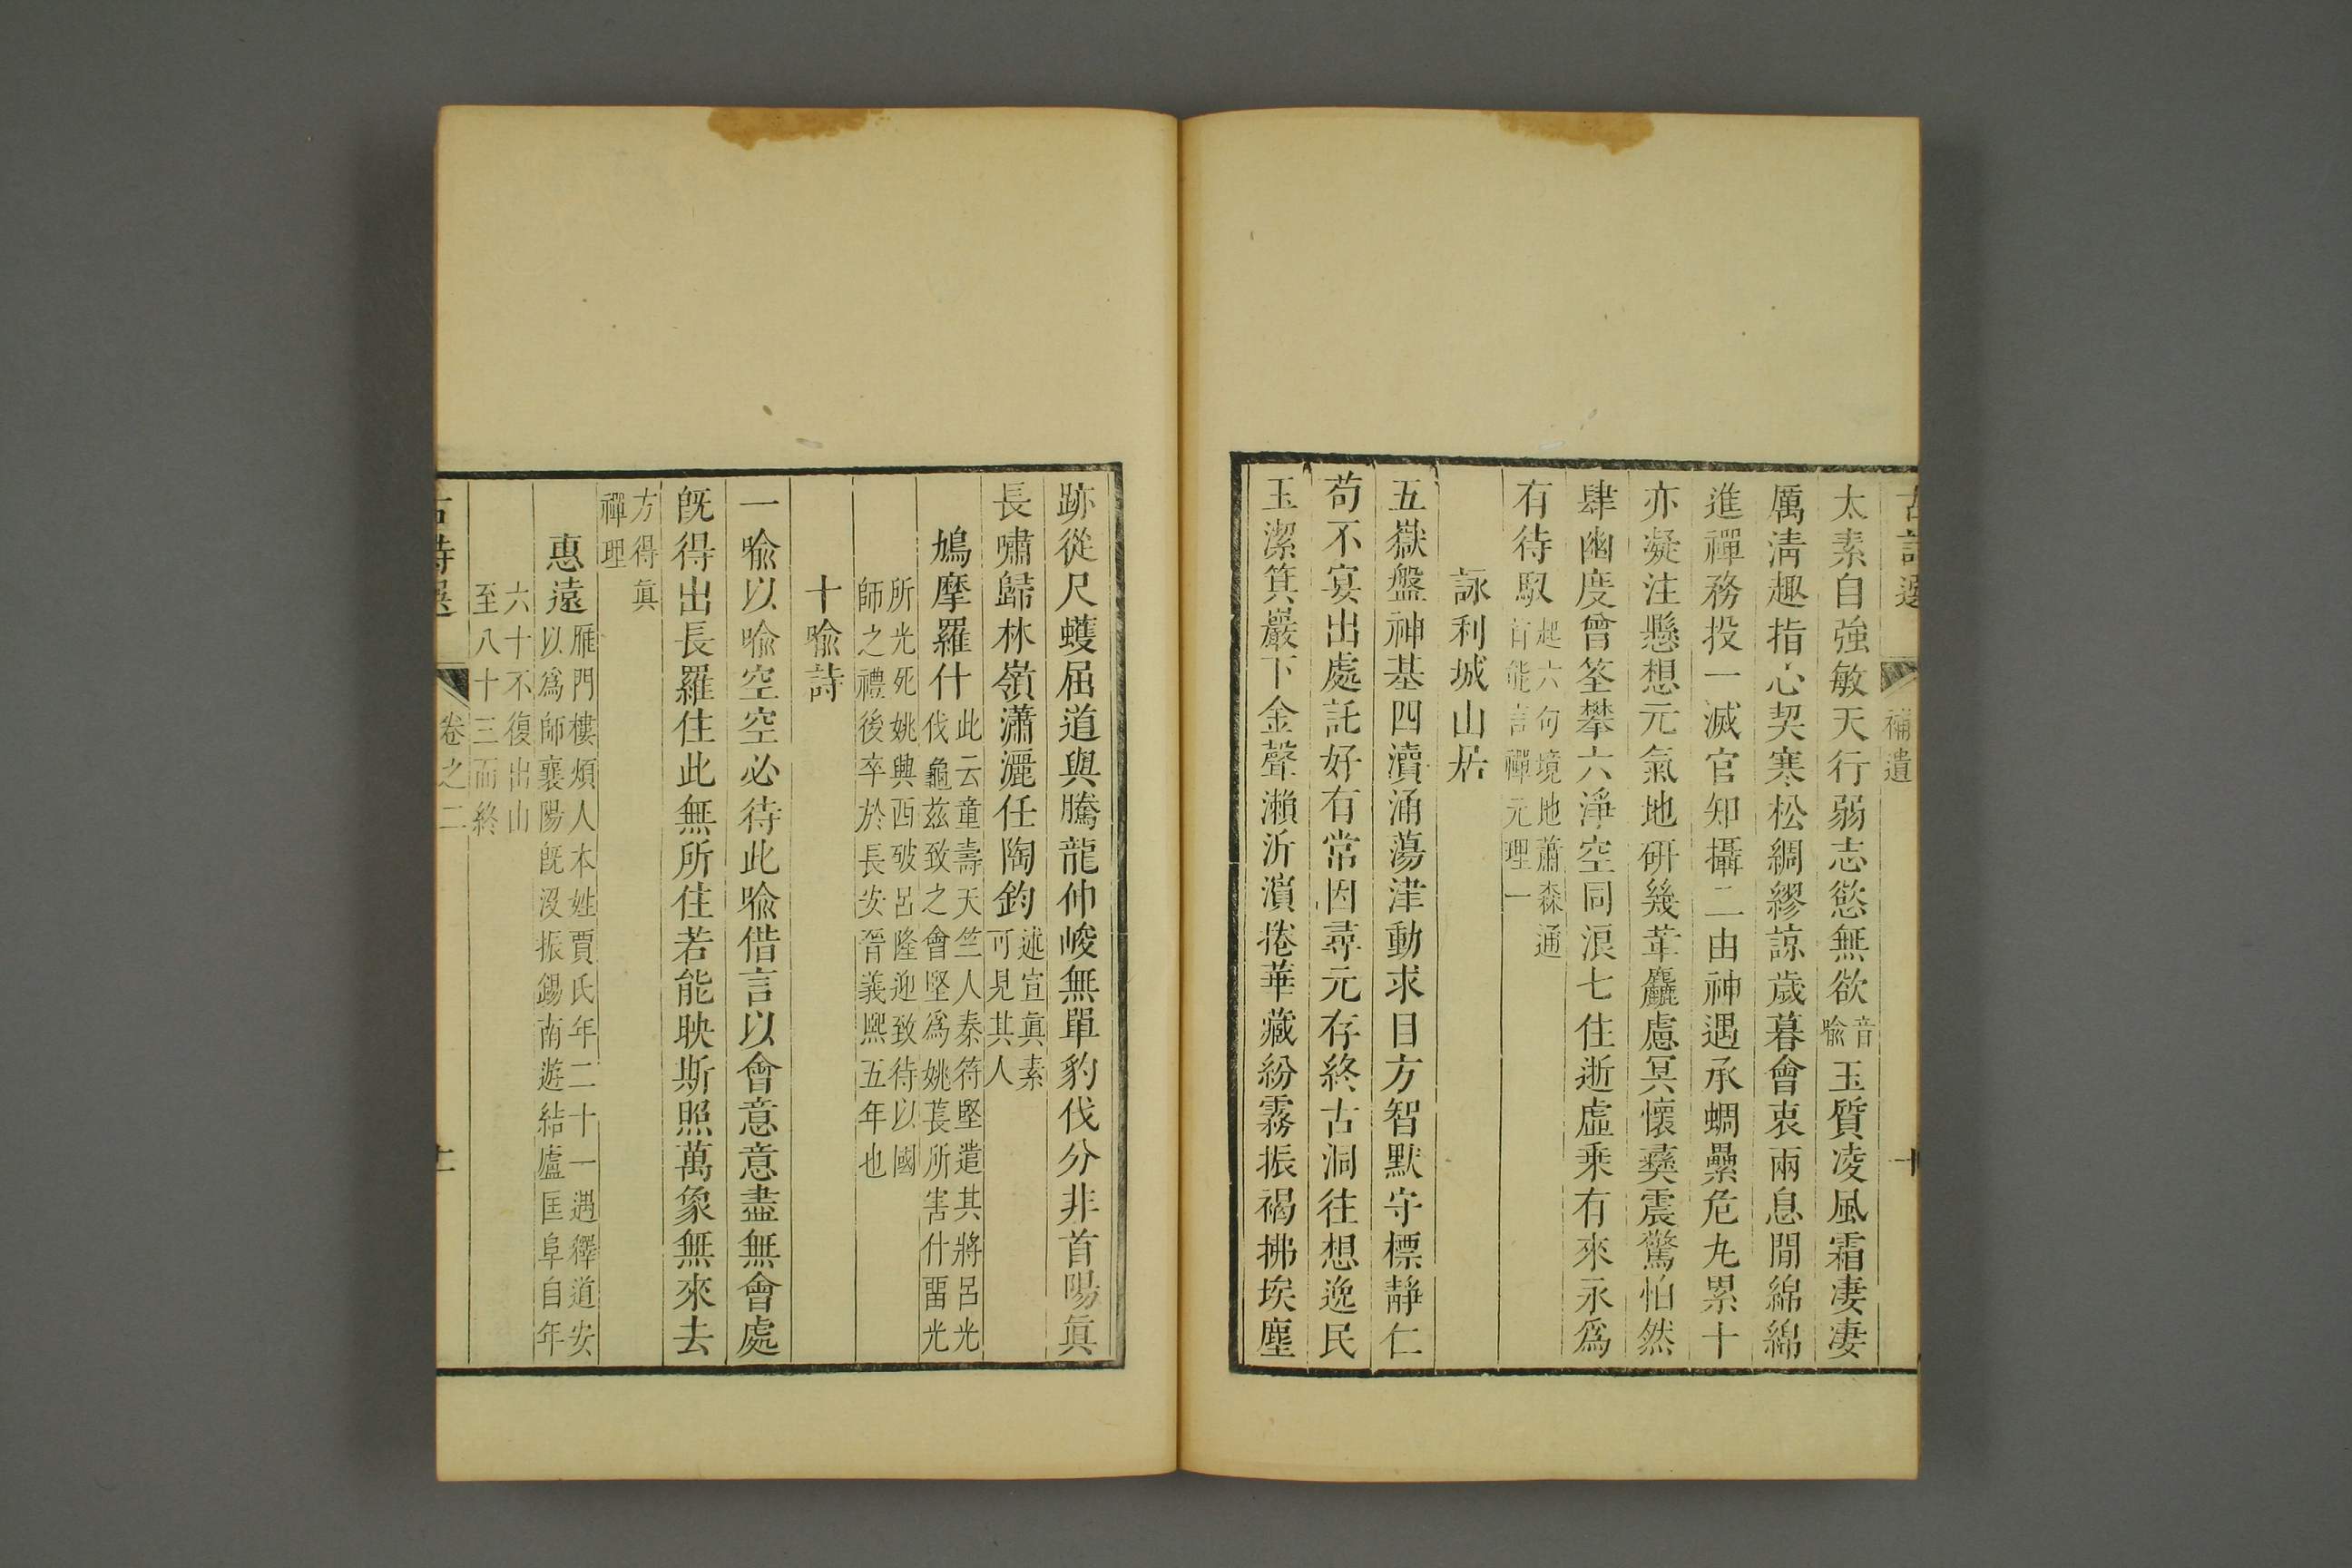 古詩選 補遺 十
太素自強敏天行弱志慾無欲音喻玉質凌風霜淒淒
厲清趣指心契寒松綢繆諒歲暮會衷兩息閒綿綿
進禪務投一滅官知攝二由神遇承蜩纍危丸累十
亦凝注懸想元氣地研幾革麤慮冥懷夷震驚怕然
肆幽度曾筌攀六淨空同浪七住逝虛乘有來永爲
有待馭起六句境地蕭森通首能言禪元理一
詠利城山居
五嶽盤神基四瀆涌蕩津動求目方智默守標靜仁
苟不宴出處託好有常因尋元存終古洞往想逸民
玉潔箕巖下金聲瀨沂濱捲華藏紛霧振褐拂埃塵
跡從尺蠖屈道與騰龍伸峻無單豹伐分非首陽眞
長嘯歸林嶺瀟灑任陶鈞述宣眞素可見其人
鳩摩羅什此云童壽天竺人秦符堅遣其將呂光伐龜茲致之會堅爲姚萇所害什畱光
所光死姚興西破呂隆迎致待以國師之禮後卒於長安晉義熙五年也
十喻詩
一喻以喻空空必待此喻借言以會意意盡無會處
旣得出長羅住此無所住若能映斯照萬象無來去
方得眞禪理
惠遠雁門樓煩人本姓賈氏年二十一遇釋道安以爲師襄陽旣沒振錫南遊結廬匡阜自年
六十不復出山至八十三而終
古詩選 卷之二 十一